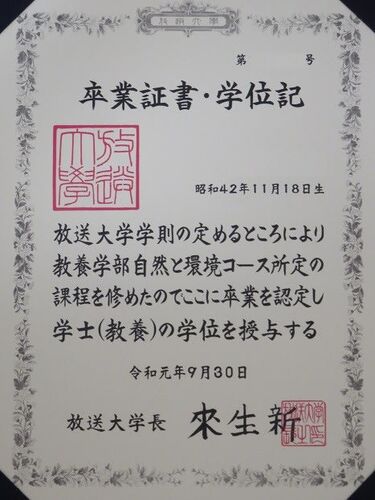 放送大學
第 号
卒業証書・学位記
放送大學
昭和42年11月18日生
放送大学学則の定めるところにより
教養学部自然と環境コース所定の
課程を修めたのでここに卒業を認定し
学士(教養)の学位を授与する
令和元年9月30日
放送大学長 來生新